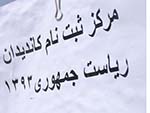 مرکز ثبت نام کاندیدان
ریاست جمهوری ۱۳۹۳